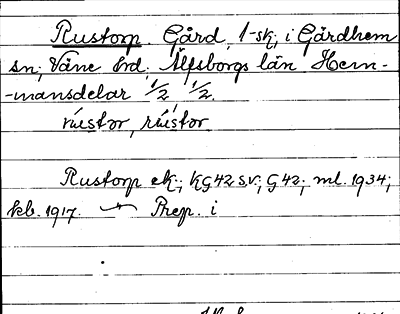 Rustorp. Gård, 1-sk; i Gärdhem
sn, Väne hd. Älfsborgs län Hem-
-mansdelar 1/2 1/2.
rústor, rústor
Rustorp ek; KG42 SV; G42; ml. 1934;
kb. 1917. Prep. i